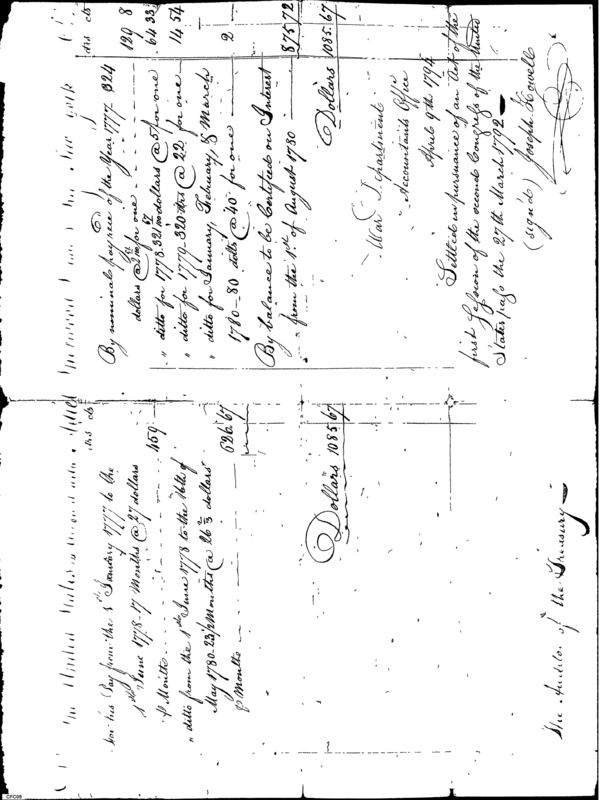 The United States
For his Pay from the 1st January 1777 to the
1st June 1778 - 17 Months @ 27 dollars
p Month 459
" ditto from the 1st June 1778 to the 16th of
May 1780 - 23 1/2 Months @ 26 2/3 dollars
p Month 626.67
Dollars 1085.67
The Auditor of the Treasury
dlrs cts
By nominal pay rec'd of the Year 1777 - 324
dollars @ for one 129 8
" ditto for 1778 - 321 67/100 dollars @ 5 for one 64 33
" ditto for 1779 - 320 dlls @ 22 for one 14 54
" ditto for January, February, & March
1780 - 80 dolls @ 40 for one 2
By balance to be Certified on Interest
from the 1st of August 1780 875 72
Dollars 1085.67
War Department
Accountants Office
April 9th 1794
Settled in pursuance of an Act of the
first Session of the second Congress of the United
States pass'd the 27th March 1792
(sign'd) Joseph Howell
CFC09